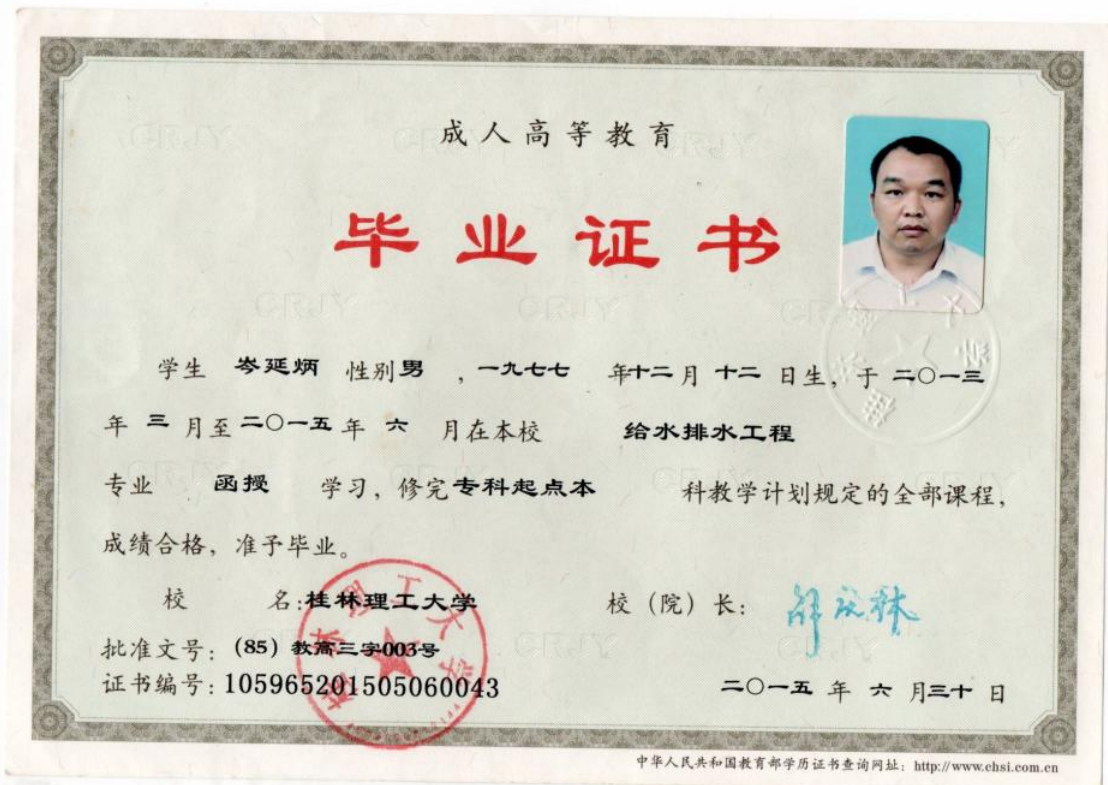 成人高等教育
毕业证书
学生 岑延炳 性别男 ,一九七七 年十二月 十二 日生, 于 二〇一三
年 三 月至二〇一五年 六 月在本校 给水排水工程
专业 函授 学习, 修完专科起点本 科教学计划规定的全部课程,
成绩合格, 准予毕业。
校 名:桂林理工大学 校（院）长:
批准文号: (85) 教高三字003号
证书编号: 105965201505060043 二〇一五 年 六 月三十 日
桂林理工大学
中华人民共和国教育部学历证书查询网址: http://www.chsi.com.cn